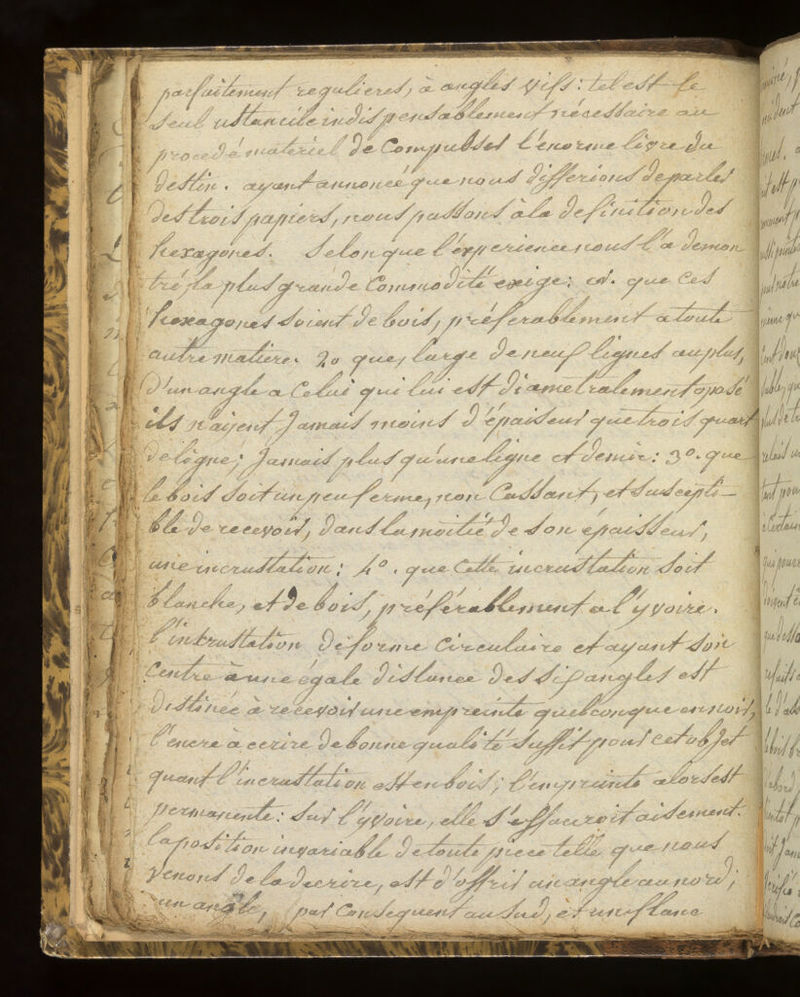 parfaitement regulieres, à angles vifs : tel est le
Seul ustancile indispensablement nécessaire au
procedé matériel de Compulser l'énorme livre du
destin. ayant annoncé que nous differions de parler
des trois papiers, nous passons à la definition des
hexagones. Selon que l'éxperience nous l'a demon
tré, la plus grande Commodité exige: que Ces
hexagones soient de bois, préferablement a toute
autre matiere. 2o que, large de neuf lignes au plus,
D'un angle a Celui qui lui est diametralement oposé
ils n'ayent Jamais moins d'épaiseur que trois quart
de ligne; Jamais plus qu'une ligne et demie: 3o. que
le bois Soit un peu ferme, non Cassant, et Suscepti-
ble de recevoir, dans la moitié de son épaisseur,
une incrustation; 4o. que Cette incrustation Soit
blanche, et de bois, préférablement a l'yvoire.
l'inkrustation de forme Circulaire et ayant Son
Centre a une égale distance des Six angles est
destinée à recevoir une empreinte quelconque en noir,
l'encre a ecrire de bonne qualité Suffit pour cet objet
quant l'incrustation est en bois; l'empreinte alors est
permanente: Sur l'yvoire, elle S'effaceroit aisement.
la position invariable de toute piece telle que nous
venons de la decrire, est d'offrir un angle au nord;
un angle, par Consequent au Sud, et un flanc